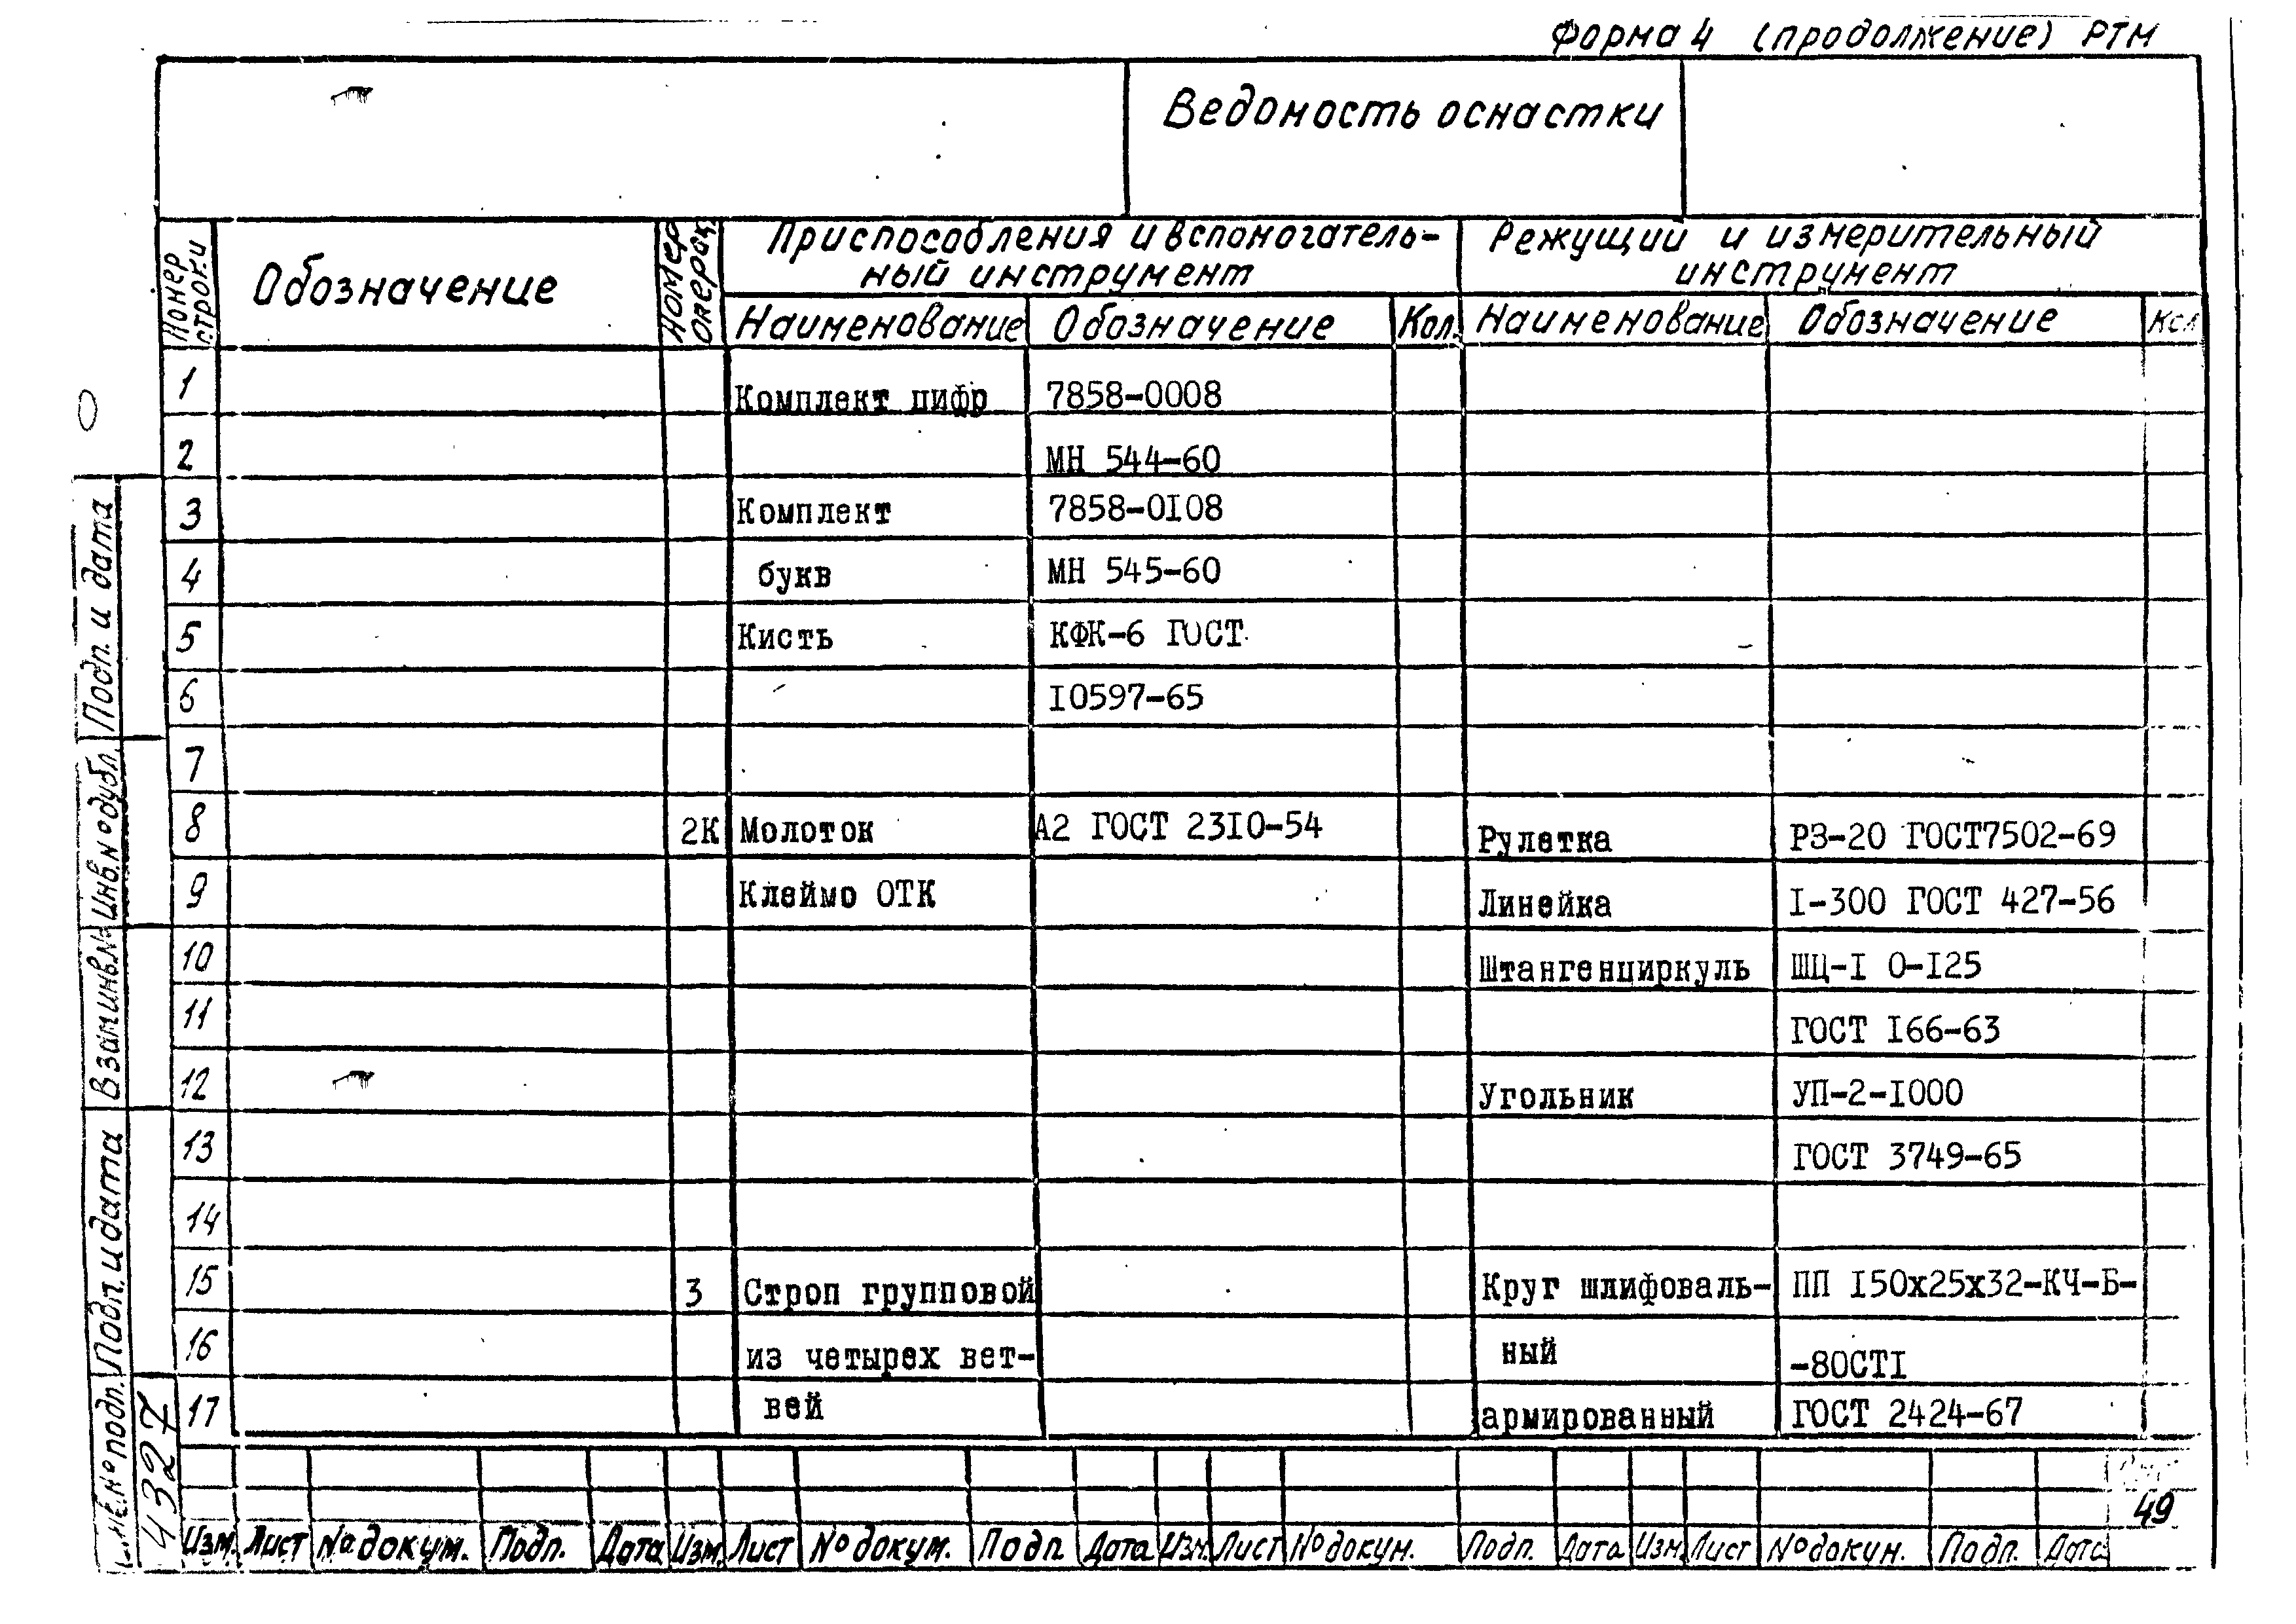 Форма 4 (продолжение) РТМ
Ведомость оснастки
Номер строки
Обозначение
Номер операц.
Приспособления и вспомогатель-
ный инструмент
Режущий и измерительный
инструмент
Наименование Обозначение Кол. Наименование Обозначение Кол
1 Комплект цифр 7858-0008
2 МН 544-60
3 Комплект 7858-0I08
4 букв МН 545-60
5 Кисть КФК-6 ГОСТ
6 I0597-65
7
8 2К Молоток А2 ГОСТ 23I0-54 Рулетка РЗ-20 ГОСТ7502-69
9 Клеймо ОТК Линейка I-300 ГОСТ 427-56
10 Штангенциркуль ШЦ-I 0-I25
11 ГОСТ I66-63
12 Угольник УП-2-I000
13 ГОСТ 3749-65
14
15 3 Строп групповой Круг шлифоваль- ПП I50х25х32-КЧ-Б-
16 из четырех вет- ный -80СТI
17 вей армированный ГОСТ 2424-67
49
Изм. Лист № докум. Подп. Дата Изм. Лист № докум. Подп Дата Изм. Лист № докум. Подп. Дата Изм. Лист № докум. Подп. Дата
Подп. и дата
Инв. № дубл.
Взам.инв.№
Подп. и дата
№ подп.
4327